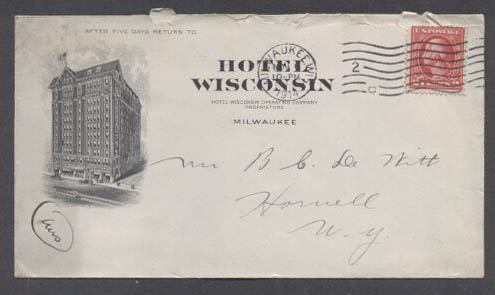 AFTER FIVE DAYS RETURN TO
HOTEL
WISCONSIN
HOTEL WISCONSIN OPERATING COMPANY
PROPRIETORS
MILWAUKEE
MILWAUKEE, WIS.
10-PM
1914
2
C
Mr B. C. De Witt
Hornell
N. Y.